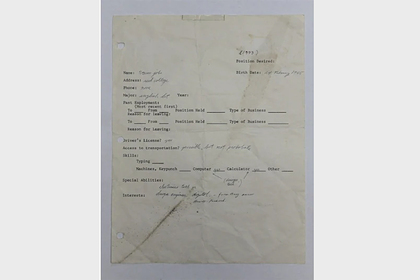 (1973)
Position Desired:
Name: Steven jobs Birth Date: 24 February 1955
Address: reed college
Phone: none
Major: english lit Year:
Past Employment:
(Most recent first)
To From Position Held Type of Business
Reason for leaving:
To From Position Held Type of Business
Reason for leaving:
Driver's License: yes
Access to transportation? possible, but not probable
Skills:
Typing
Machines, Keypunch Computer yes Calculator yes Other
Special Abilities:
Interests: